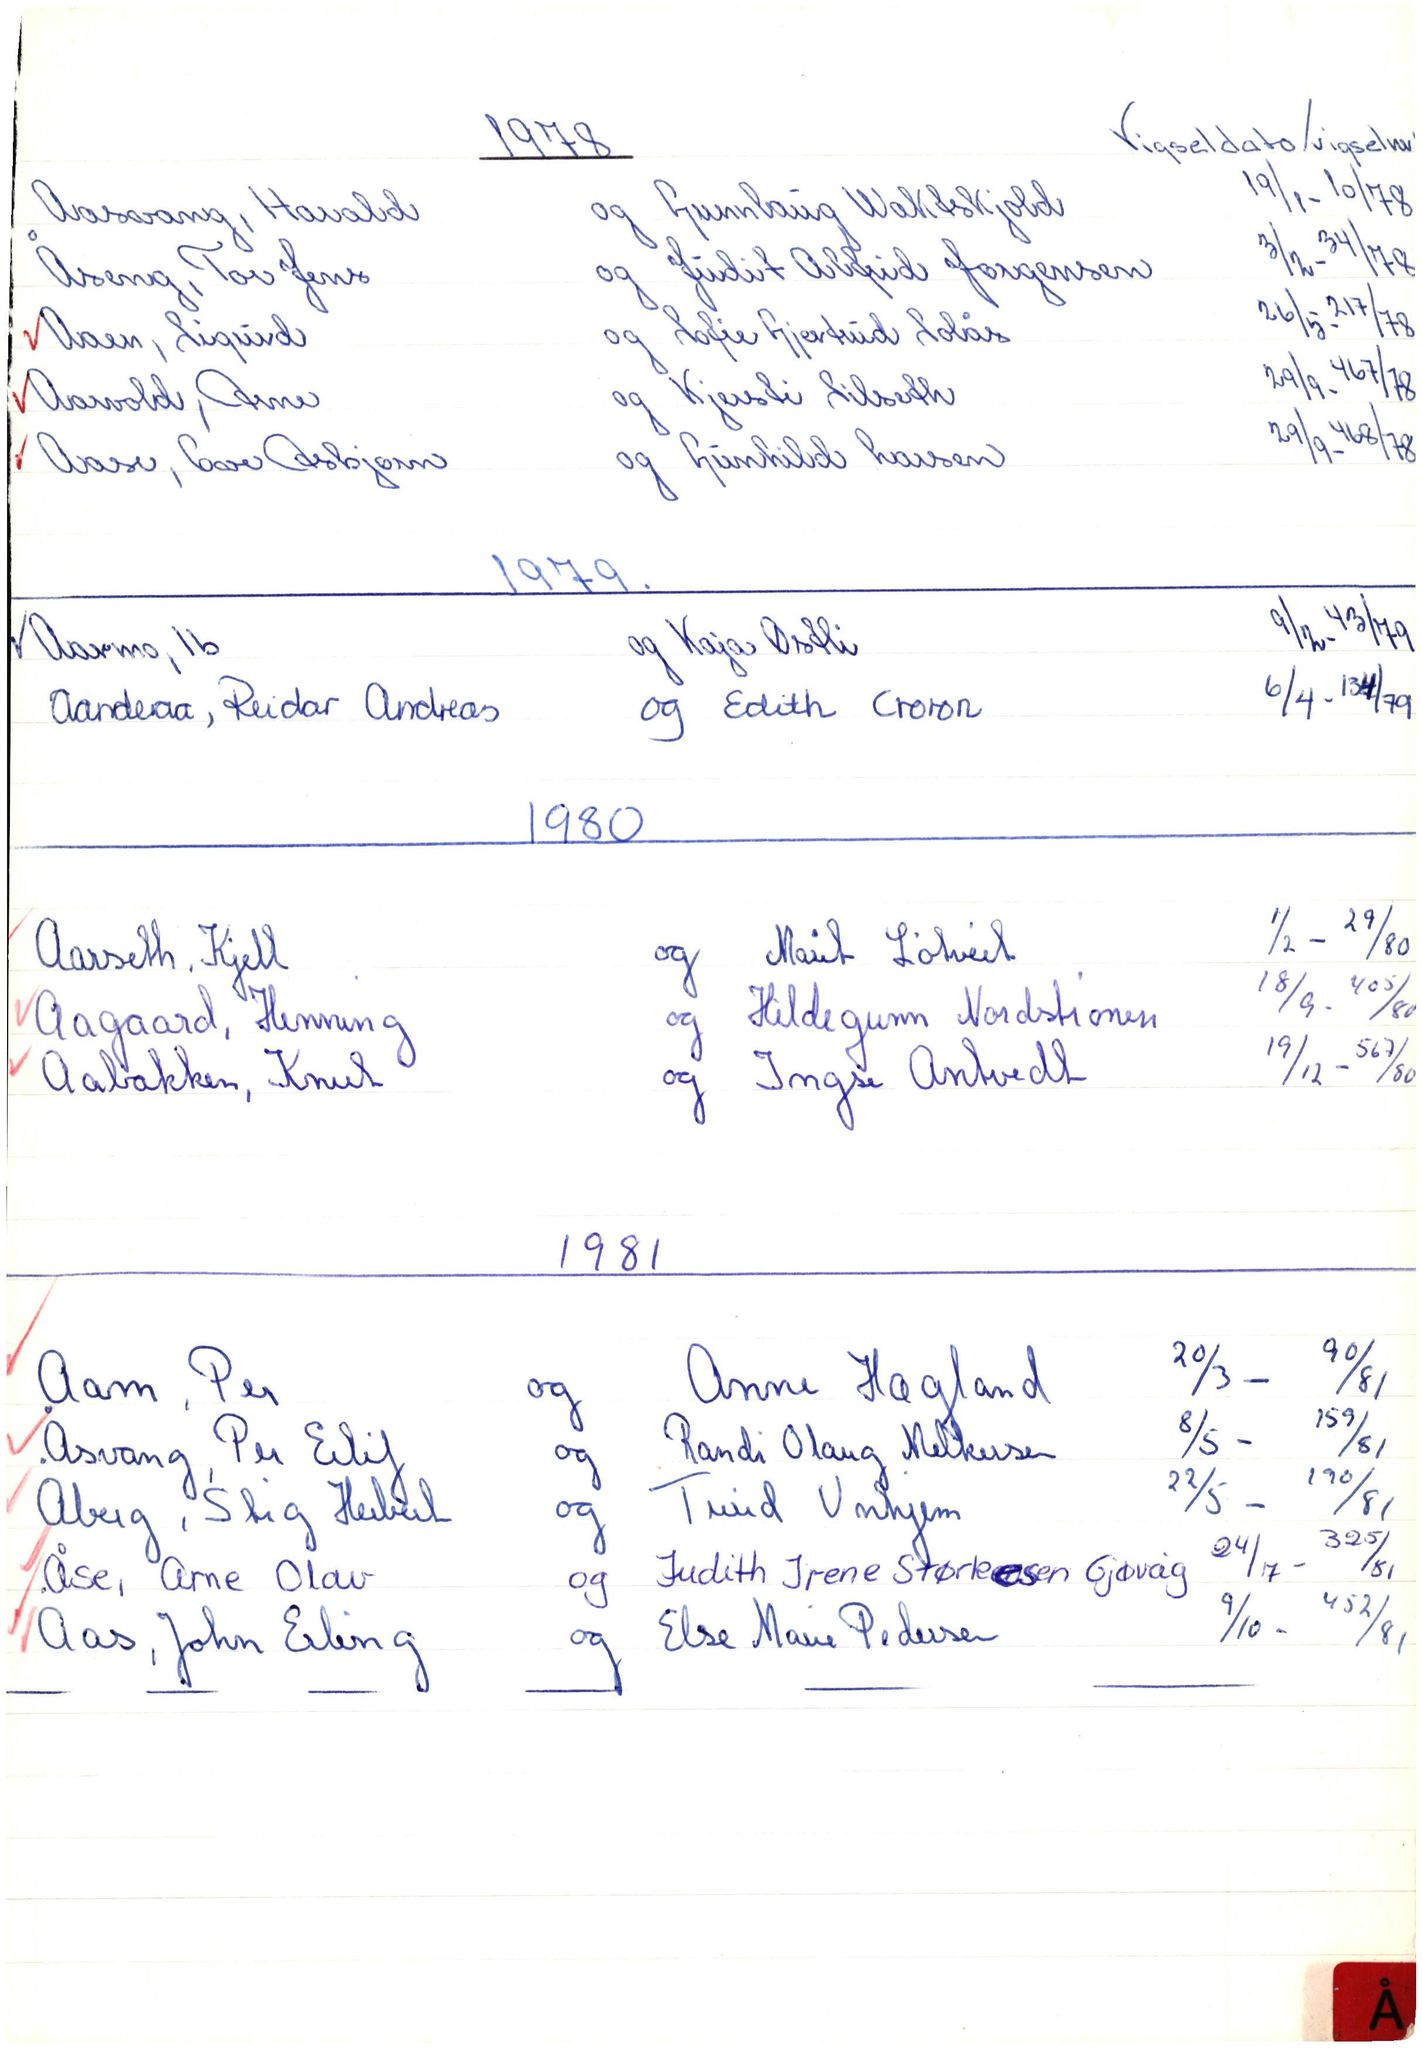 1978 Vigseldato/vigselnr
Aasvang, Harald og Gunnhaug Waktskjold 19/1 - 10/78
Åseng, Tor Jens og Judit Alfhild Jørgensen 3/2 - 34/78
Aaen, Sigurd og Sofie Gjertrud Solås 26/5 - 217/78
Aarvold, Arne og Kjersti Lilseth 29/9 - 467/78
Aase, Asbjørn og Gunhild Larsen 29/9 - 468/78
1979.
Aarmo, Ib og Kaja Østli 9/2 - 43/79
Aanderaa, Reidar Andreas og Edith Croron 6/4 - 134/79
1980
Aarseth, Kjell og Marit Lötveit 1/2 - 29/80
Aagaard, Henning og Hildegunn Nordstrønen 18/9 - 405/80
Aabakken, Knut og Inger Antvedt 19/12 - 567/80
1981
Aam, Per og Anne Hagland 20/3 - 90/81
Åsvang, Per Eilif og Randi Olaug Melkersen 8/5 - 159/81
Åberg, Stig Herbert og Turid Vorhjem 22/5 - 190/81
Åse, Arne Olav og Judith Irene Størkersen Gjøvåg 24/7 - 325/81
Aas, John Erling og Else Marie Pedersen 9/10 - 452/81
Å